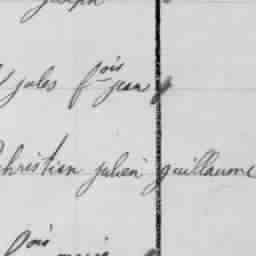 joseph
jules fois jean
christian julien guillaume
fois marie